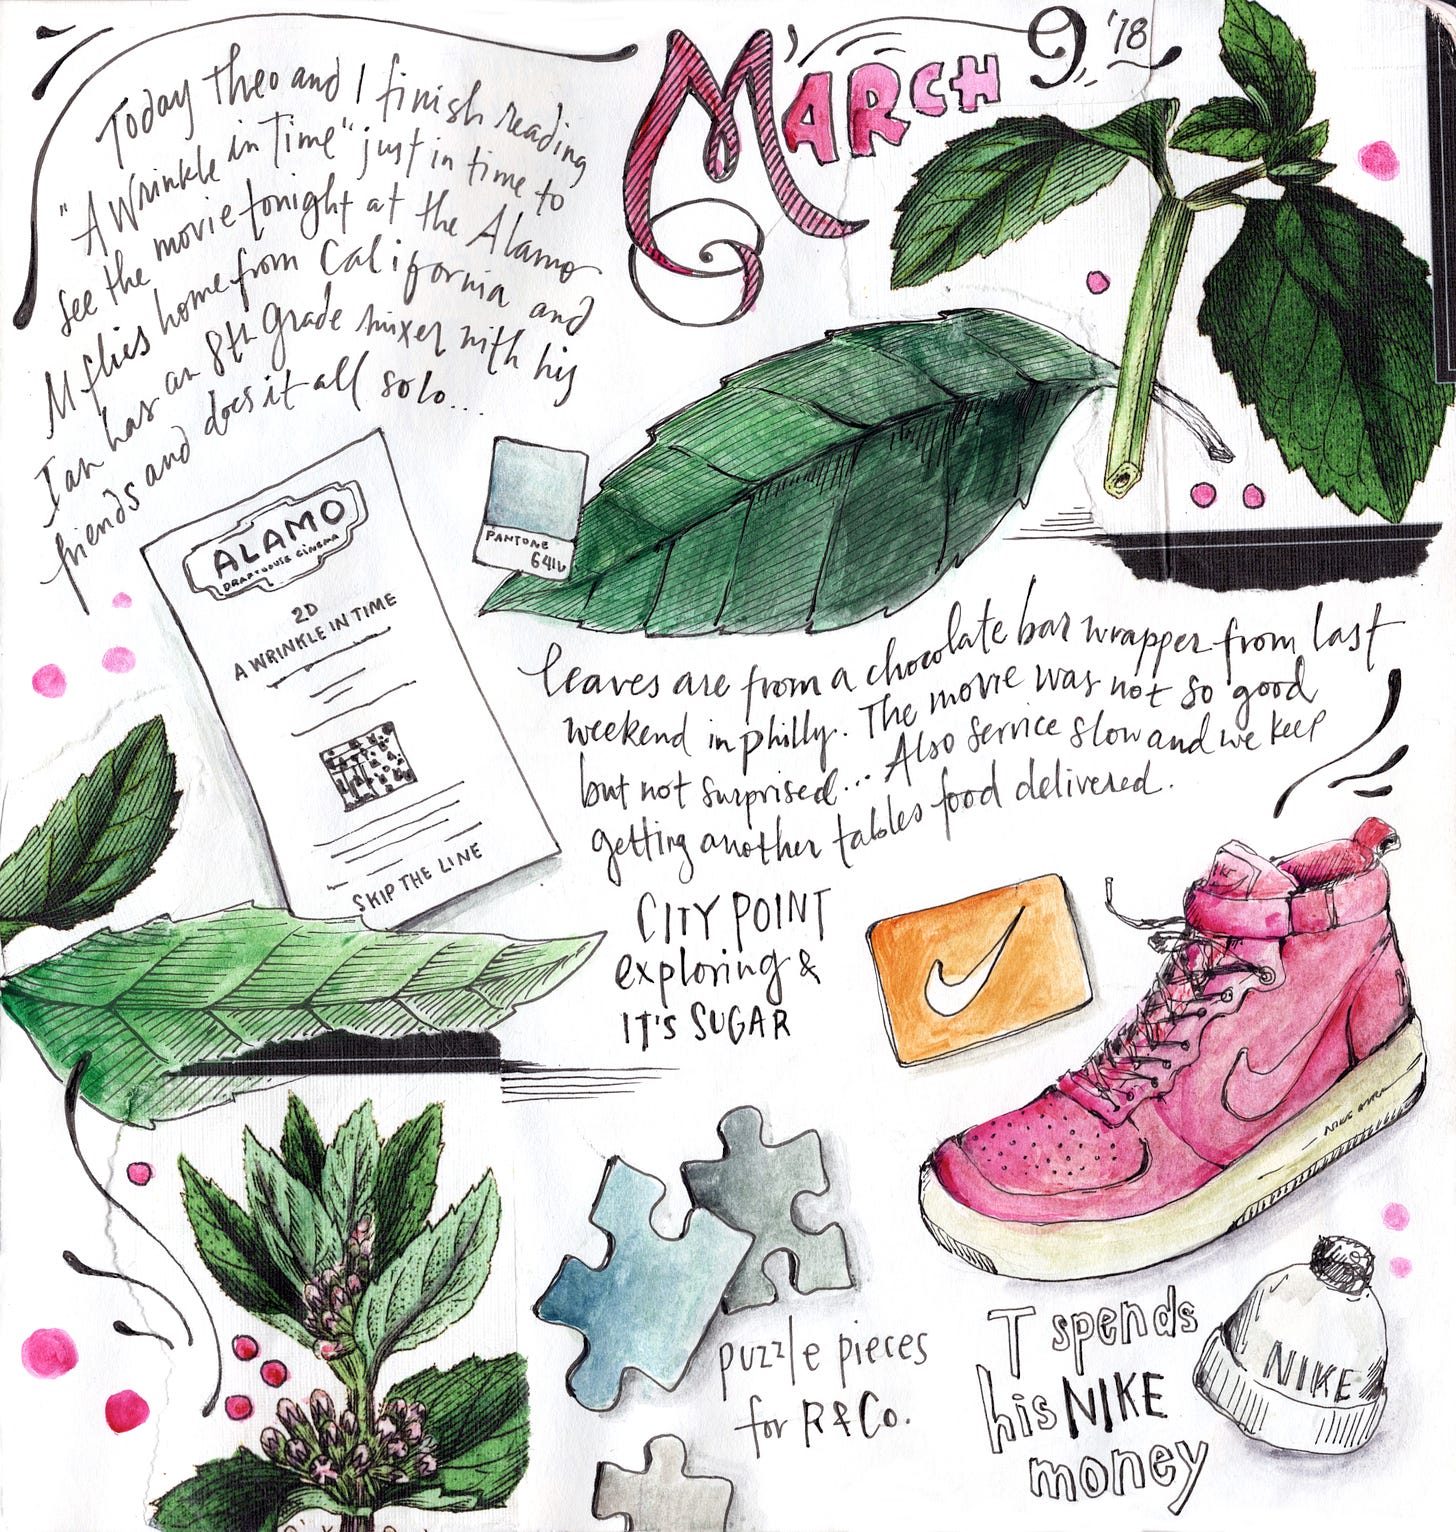 MARCH 9, '18
Today Theo and I finish reading
"A Wrinkle in Time" just in time to
see the movie tonight at the Alamo
M flies home from California and
Ian has an 8th grade mixer with his
friends and does it all solo...
ALAMO
DRAFTHOUSE CINEMA
2D
A WRINKLE IN TIME
SKIP THE LINE
PANTONE
leaves are from a chocolate bar wrapper from last
weekend in philly. The movie was not so good
but not surprised... Also service slow and we keep
getting another tables food delivered.
CITY POINT
exploring &
IT'S SUGAR
NIKE
puzzle pieces
for R & Co.
T spends
his NIKE
money
NIKE